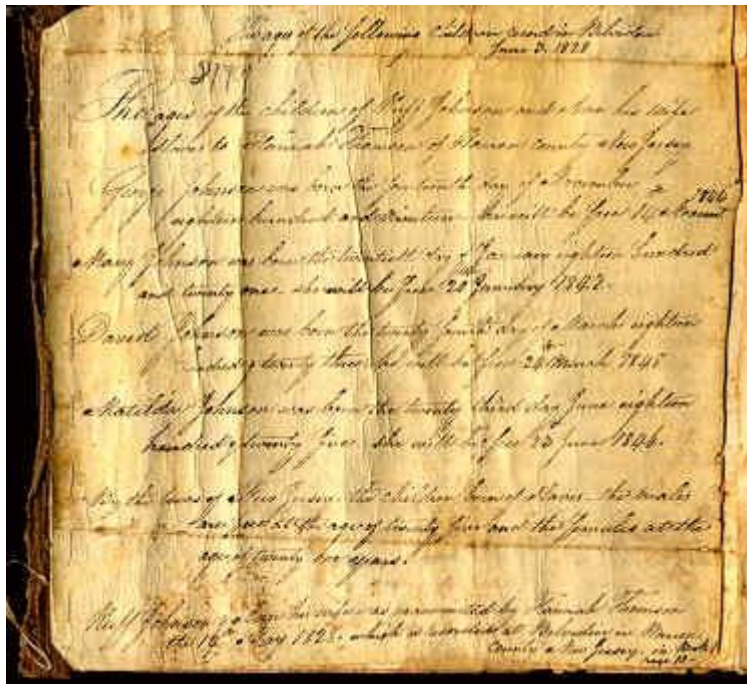 The ages of the following Children record in Belvidere
June 3. 1828
The ages of the children of Neff Johnson and Ann his wife
slaves to Hannah Thomson of Warren County New Jersey
George Johnson was born the fourteenth day of November
eighteen hundred and nineteen he will be free 14 1844
Mary Johnson was born the twentieth day of January eighteen hundred
and twenty one she will be free 20th January 1842.
David Johnson was born the twenty day of March eighteen
hundred & twenty three he will be free 24th March 1848
Matilda Johnson was born the twenty third day June eighteen
hundred & twenty five she will be free 23 June 1846.
By the laws of New Jersey the children born of slaves the males
are free at the age of twenty five and the females at the
age of twenty one years.
Johnson his wife as by Hannah Thomson
the 19th May 182 which is recorded at Belvidere in Warren
County New Jersey. in Book
page